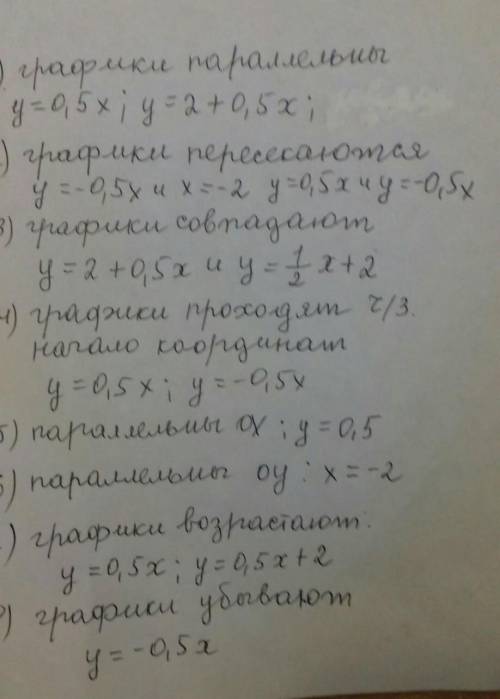 ) графики параллельны
y=0,5x; y=2+0,5x;
) графики пересекаются
y=-0,5x и x=-2 y=0,5x и y=-0,5x
3) графики совпадают
y=2+0,5x и y=1/2 x+2
4) графики проходят ч/з.
начало координат
y=0,5x; y=-0,5x
5) параллельны ox; y=0,5
6) параллельны oy: x=-2
) графики возрастают:
y=0,5x; y=0,5x+2
) графики убывают
y=-0,5x